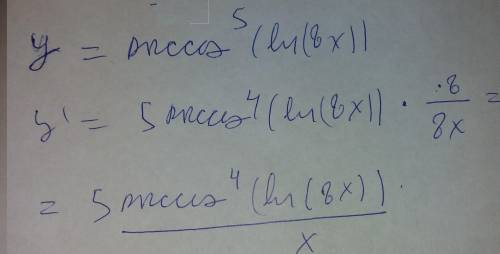 y = arccos⁵(ln(8x))
y' = 5 arccos⁴(ln(8x)) · ·8/8x =
= 5 arccos⁴(ln(8x))/x ·